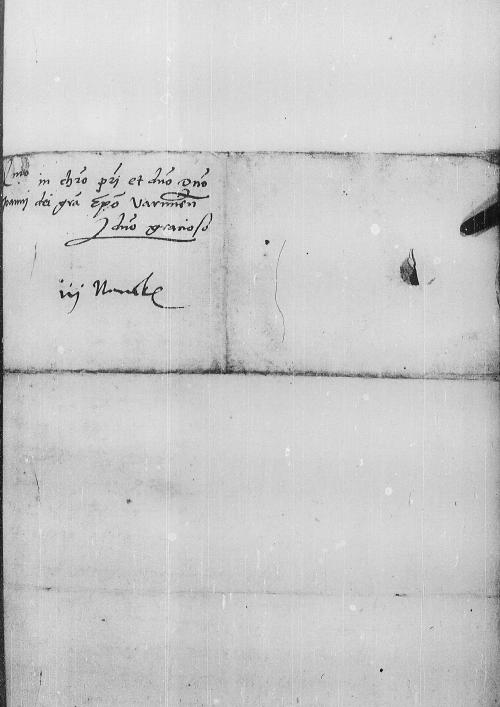 in chro pri et dno Dno
dei gra Epo Varmien
dno gracioso
iij